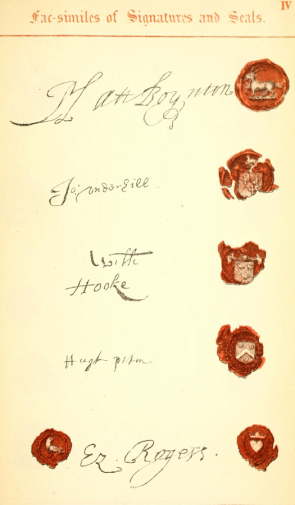 IV
Fac-similes of Signatures and Seals.
Matt Boynton
Jo: underhill
Will
Hooke
Hugh
Ez. Rogers.